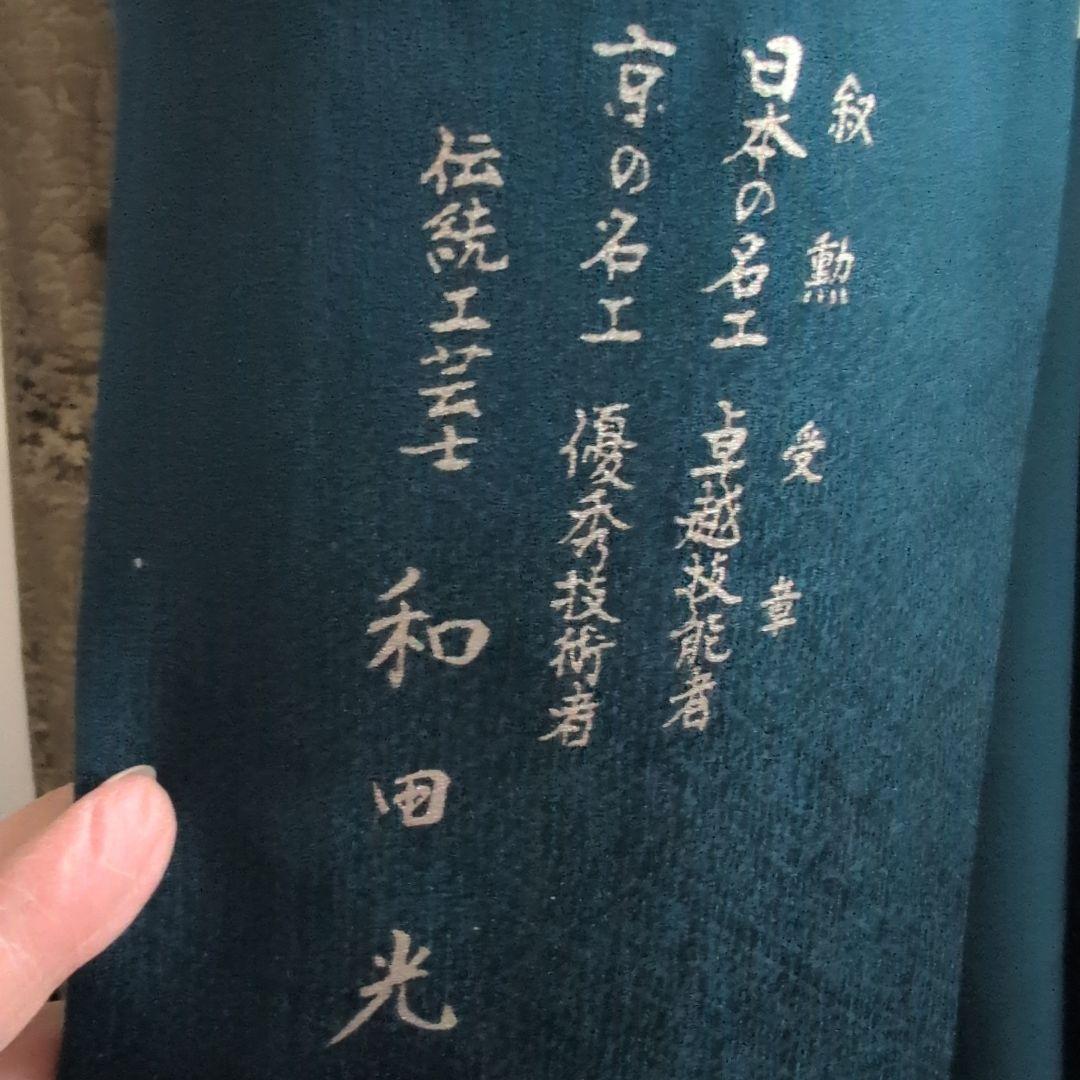 叙勲受章
日本の名工 卓越技能者
京の名工 優秀技術者
伝統工芸士 和田光